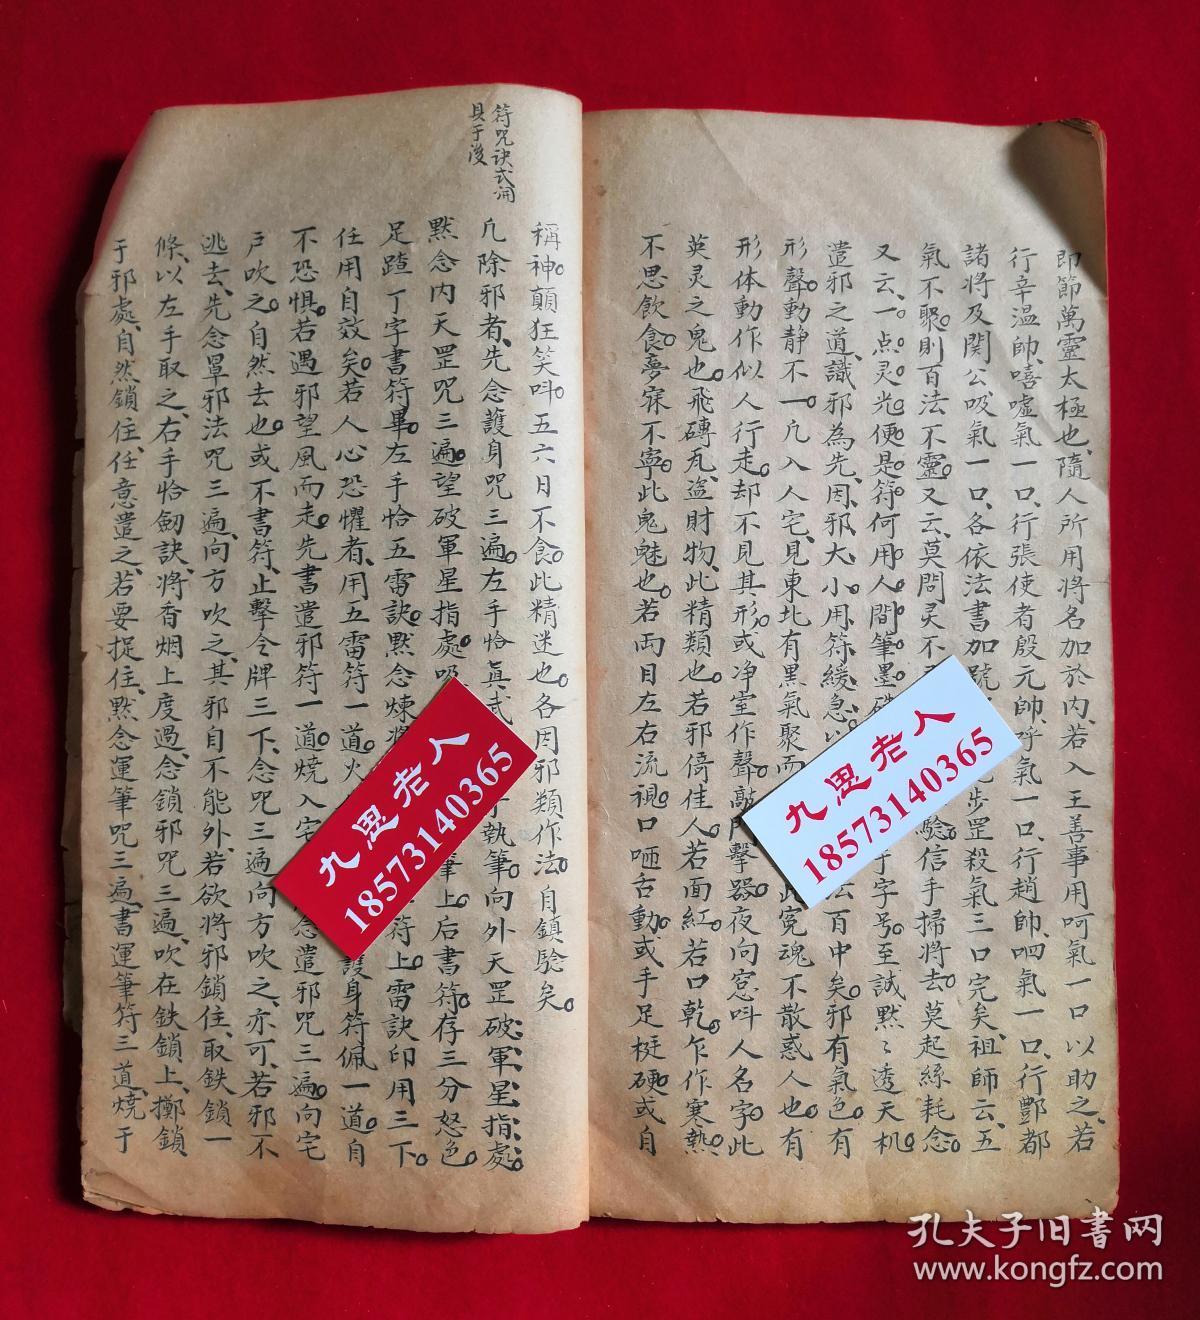 即節萬靈太極也、隨人所用將名加於內、若入王善事用呵氣一口以助之、若
行辛溫帥、嘻噓氣一口、行張使者殷元帥、呼氣一口、行趙帥、呬氣一口、行酆都
諸將及関公吸氣一口、各依法書加號 步罡殺氣三口完矣、祖師云、五
氣不聚、則百法不靈、又云、莫問灵不 驗、信手掃將去、莫起絲耗念。
又云、一点灵光便是符、何用人間筆墨 字号、至誠默〻透天机。
遣邪之道、識邪為先、因邪大小用符緩急、以 法百中矣。邪有氣色、有
形聲、動静不一、凢入人宅、見東北有黑氣聚而 此寃魂不散惑人也、有
形体動作似人行走、却不見其形、或净室作聲、敲門擊器、夜向窓呌人名字、此
英灵之鬼也、飛磚瓦、盗財物、此精類也、若邪倚佳人、若面紅、若口乾、乍作寒熱、
不思飲食、夢寐不寧、此鬼魅也、若両目左右流視、口咂舌動、或手足梃硬、或自
符咒訣式開
具于後
稱神、顛狂笑呌、五六日不食、此精迷也、各因邪類作法、自鎮驗矣。
凢除邪者、先念護身咒三遍、左手恰真武 執筆向外天罡破軍星指處、
黙念内天罡咒三遍、望破軍星指處吸 筆上、后書符、存三分怒色、
足踏丁字書符畢、左手恰五雷訣、黙念煉將 符上、雷訣印用三下、
任用自效矣、若人心恐懼者、用五雷符一道、火 護身符佩一道、自
不恐惧、若遇邪望風而走、先書遣邪符一道、燒入宅 念遣邪咒三遍、向宅
戸吹之、自然去也、或不書符、止擊令牌三下、念咒三遍向方吹之、亦可、若邪不
逃去、先念罩邪法咒三遍、向方吹之、其邪自不能外、若欲將邪鎖住、取鉄鎖一
條、以左手取之、右手恰劒訣、將香烟上度過、念鎖邪咒三遍、吹在鉄鎖上、擲鎖
于邪處、自然鎖住、任意遣之、若要捉住、黙念運筆咒三遍、書運筆符三道、燒于
九思老人
18573140365
九思老人
18573140365
孔夫子旧書网
www.kongfz.com